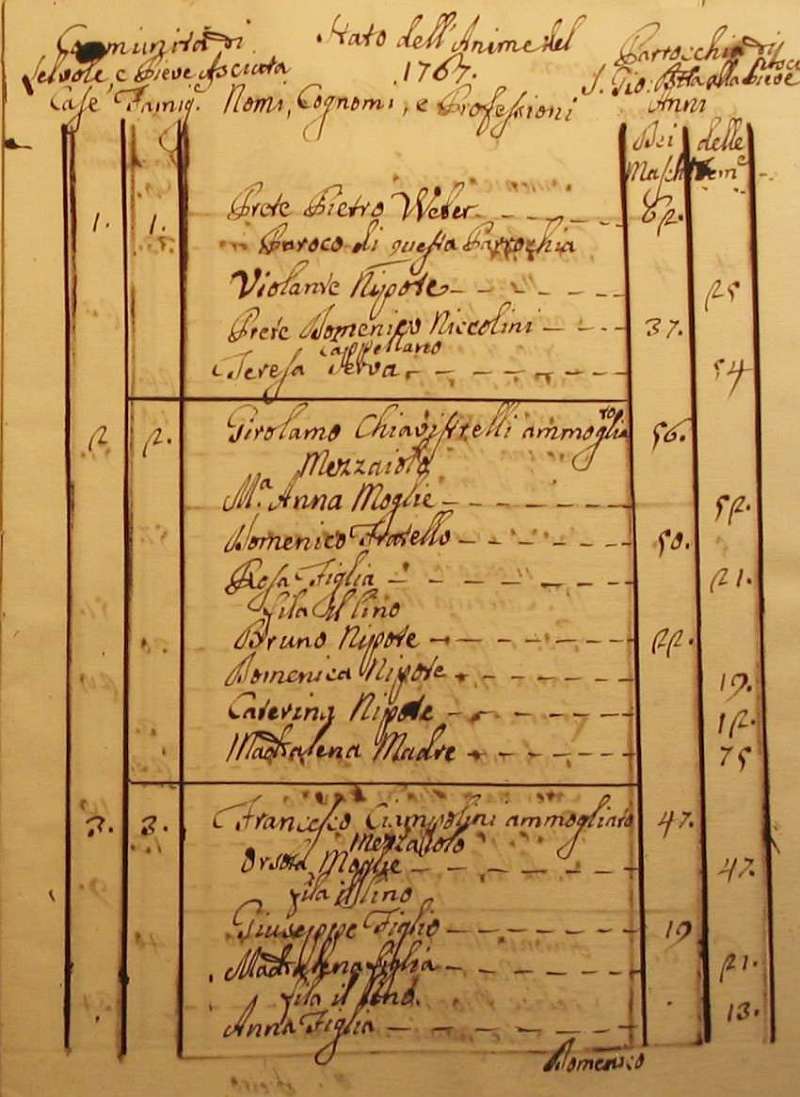 Comunità di Stato dell'Anime del Parrocchia di
Selvole, e Pieve Asciata 1767. S. Gio: Btta alla Pieve
Case Famig. Nomi, Cognomi, e Professioni Anni
Dei delle
Masch Fem.e
1. 1. Prete Pietro Weber 62.
Paroco di questa Parrochia
Violante Nipote 25
Prete Domenico Niccolini 37.
Cappellano
Teresa Serva 54
2 2. Girolamo Chiavistrelli ammogliato 56.
Mezzaiolo
M.a Anna Moglie 52.
Domenico Fratello 50.
Rosa Figlia 21.
fila il lino
Bruno Nipote 22.
Domenica Nipote 19.
Caterina Nipote 12.
Maddalena Madre 75
3. 3. Francesco Ciampolini ammogliato 47.
Mezzaiolo
Orsola Moglie 47.
fila il lino
Giuseppe Figlio 19
Maddalena figlia 21.
fila il lino.
Anna Figlia 13.
Domenico